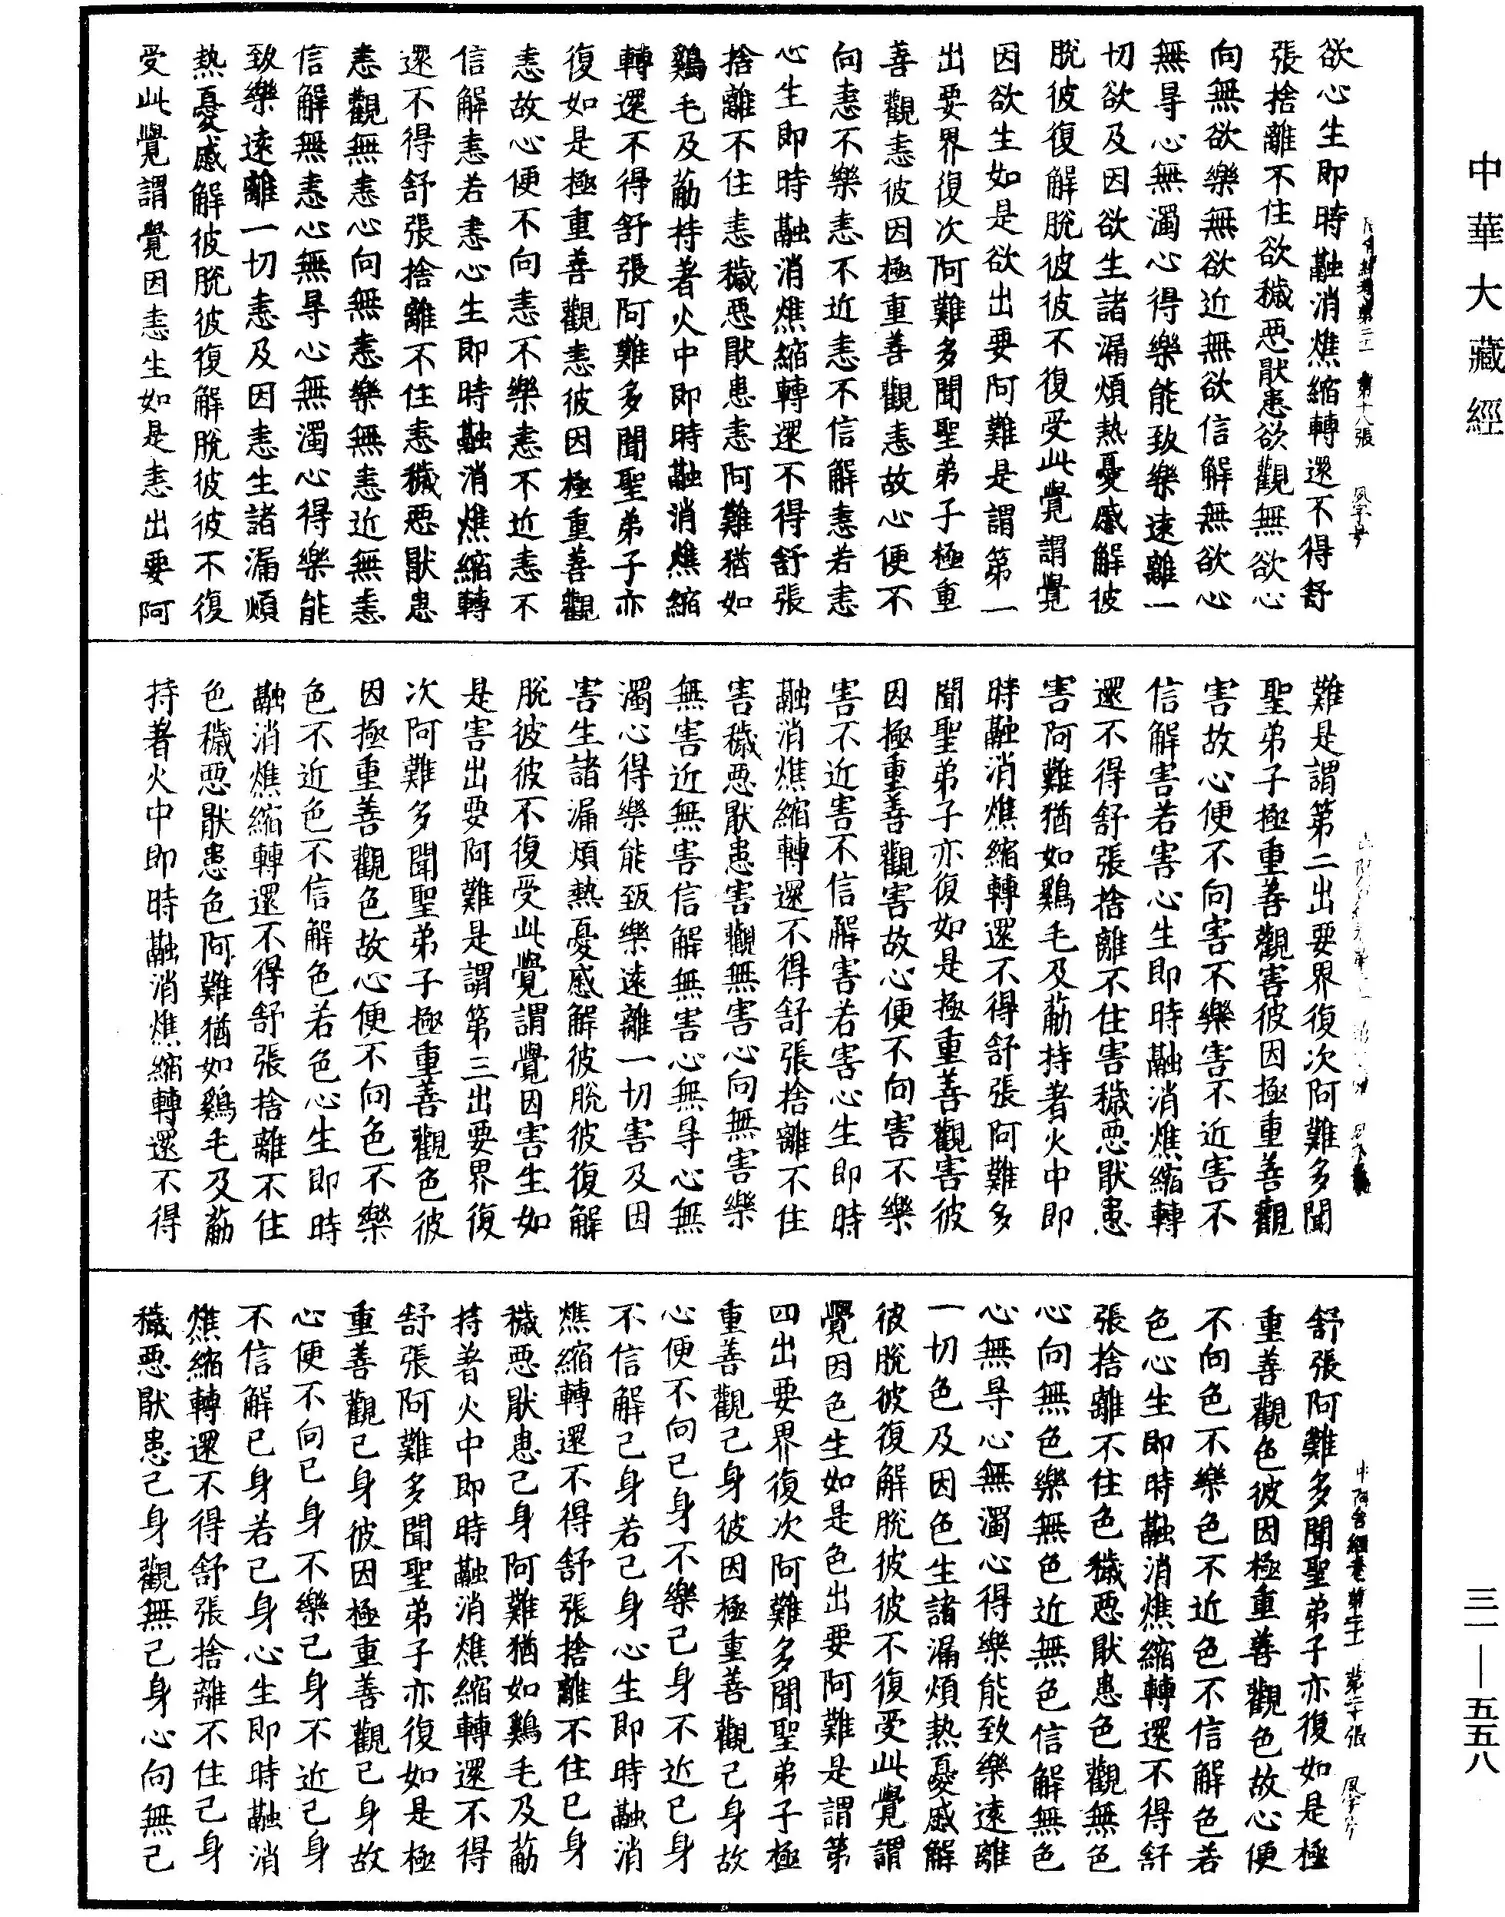 中華大藏經
欲心生即時融消燋縮轉還不得舒
張捨離不住欲穢惡猒患欲觀無欲心
向無欲樂無欲近無欲信解無欲心
無㝵心無濁心得樂能致樂遠離一
切欲及因欲生諸漏煩熱憂慼解彼
脫彼復解脫彼彼不復受此覺謂覺
因欲生如是欲出要阿難是謂第一
出要界復次阿難多聞聖弟子極重
善觀恚彼因極重善觀恚故心便不
向恚不樂恚不近恚不信解恚若恚
心生即時融消燋縮轉還不得舒張
捨離不住恚穢惡猒患恚阿難猶如
鷄毛及葪持著火中即時融消燋縮
轉還不得舒張阿難多聞聖弟子亦
復如是極重善觀恚彼因極重善觀
恚故心便不向恚不樂恚不近恚不
信解恚若恚心生即時融消燋縮轉
還不得舒張捨離不住恚穢惡猒患
恚觀無恚心向無恚樂無恚近無恚
信解無恚心無㝵心無濁心得樂能
致樂遠離一切恚及因恚生諸漏煩
熱憂慼解彼脫彼復解脫彼彼不復
受此覺謂覺因恚生如是恚出要阿
難是謂第二出要界復次阿難多聞
聖弟子極重善觀害彼因極重善觀
害故心便不向害不樂害不近害不
信解害若害心生即時融消燋縮轉
還不得舒張捨離不住害穢惡猒患
害阿難猶如鷄毛及葪持著火中即
時融消燋縮轉還不得舒張阿難多
聞聖弟子亦復如是極重善觀害彼
因極重善觀害故心便不向害不樂
害不近害不信解害若害心生即時
融消燋縮轉還不得舒張捨離不住
害穢惡猒患害觀無害心向無害樂
無害近無害信解無害心無㝵心無
濁心得樂能致樂遠離一切害及因
害生諸漏煩熱憂慼解彼脫彼復解
脫彼彼不復受此覺謂覺因害生如
是害出要阿難是謂第三出要界復
次阿難多聞聖弟子極重善觀色彼
因極重善觀色故心便不向色不樂
色不近色不信解色若色心生即時
融消燋縮轉還不得舒張捨離不住
色穢惡猒患色阿難猶如鷄毛及葪
持著火中即時融消燋縮轉還不得
舒張阿難多聞聖弟子亦復如是極
重善觀色彼因極重善觀色故心便
不向色不樂色不近色不信解色若
色心生即時融消燋縮轉還不得舒
張捨離不住色穢惡猒患色觀無色
心向無色樂無色近無色信解無色
心無㝵心無濁心得樂能致樂遠離
一切色及因色生諸漏煩熱憂慼解
彼脫彼復解脫彼彼不復受此覺謂
覺因色生如是色出要阿難是謂第
四出要界復次阿難多聞聖弟子極
重善觀己身彼因極重善觀己身故
心便不向己身不樂己身不近己身
不信解己身若己身心生即時融消
燋縮轉還不得舒張捨離不住己身
穢惡猒患己身阿難猶如鷄毛及葪
持著火中即時融消燋縮轉還不得
舒張阿難多聞聖弟子亦復如是極
重善觀己身彼因極重善觀己身故
心便不向己身不樂己身不近己身
不信解己身若己身心生即時融消
燋縮轉還不得舒張捨離不住己身
穢惡猒患己身觀無己身心向無己
三一—五五八